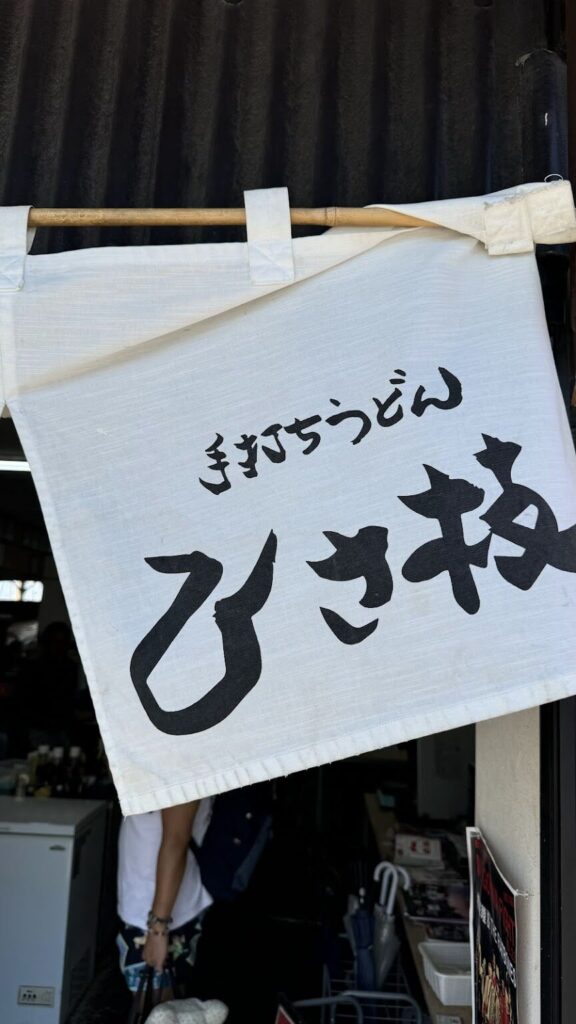 手打ちうどん
ひさ枝